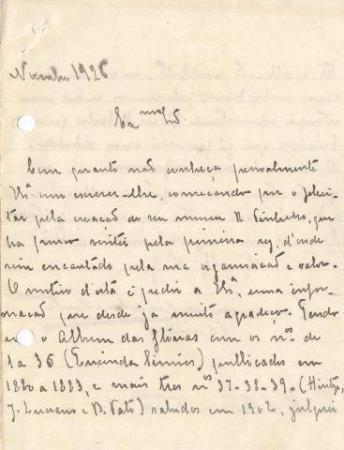 Novembro 1926
Exmo Snr.
Bem quanto não conheça pessoalmente
Vª vou escrever-lhe, começando por o felici-
tar pela creação do seu museu R. Pinheiro, que
ha pouco visitei pela primeira vez, d'onde
vim encantado pela sua organisação e valor.
O motivo d'esta é pedir a Vª, uma infor-
mação que desde já muito agradeço. Tendo
eu o Album das Glorias com os nos. de
1 a 36 (Encinda Simões) publicados em
1880 a 1883, e mais tres nos 37-38-39-(Hintze,
J. Luciano e B. Pato) sahidos em 1902, julguei